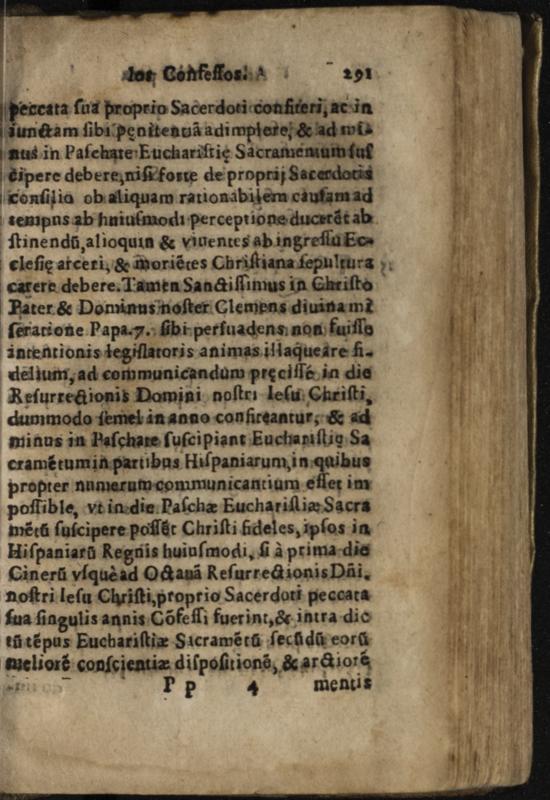 los Confessos. 291
peccata sua proprio Sacerdoti confiteri, ac in
iunctam sibi pęnitentiã adimplere, & ad mi-
nus in Paschate Eucharistię Sacramentum sus
cipere debere, nisi forte de proprij Sacerdotis
consilio ob aliquam rationabilem causam ad
tempus ab huiusmodi perceptione ducerẽt ab
stinendũ, alioquin & viuentes ab ingressu Ec-
clesię arceri, & moriẽtes Christiana sepultura
carere debere. Tamen Sanctissimus in Christo
Pater & Dominus noster Clemens diuina mi
seratione Papa. 7. sibi persuadens non fuisse
intentionis legislatoris animas illaqueare fi-
delium, ad communicandum pręcissé in die
Resurrectionis Domini nostri Iesu Christi,
dummodo semel in anno confiteantur, & ad
minus in Paschate suscipiant Eucharistię Sa
cramẽtum in partibus Hispaniarum, in quibus
propter numerum communicantium esset im
possible, vt in die Paschæ Eucharistiæ Sacra
mẽtũ suscipere possẽt Christi fideles, ipsos in
Hispaniarũ Regnis huiusmodi, si à prima die
Cinerũ vsquè ad Octauã Resurrectionis Dñi.
nostri Iesu Christi, proprio Sacerdoti peccata
sua singulis annis Cõfessi fuerint, & intra dic
tũ tẽpus Eucharistiæ Sacramẽtũ secũdũ eorũ
meliorẽ conscientiæ dispositionẽ, & arctiorẽ
P p 4 mentis